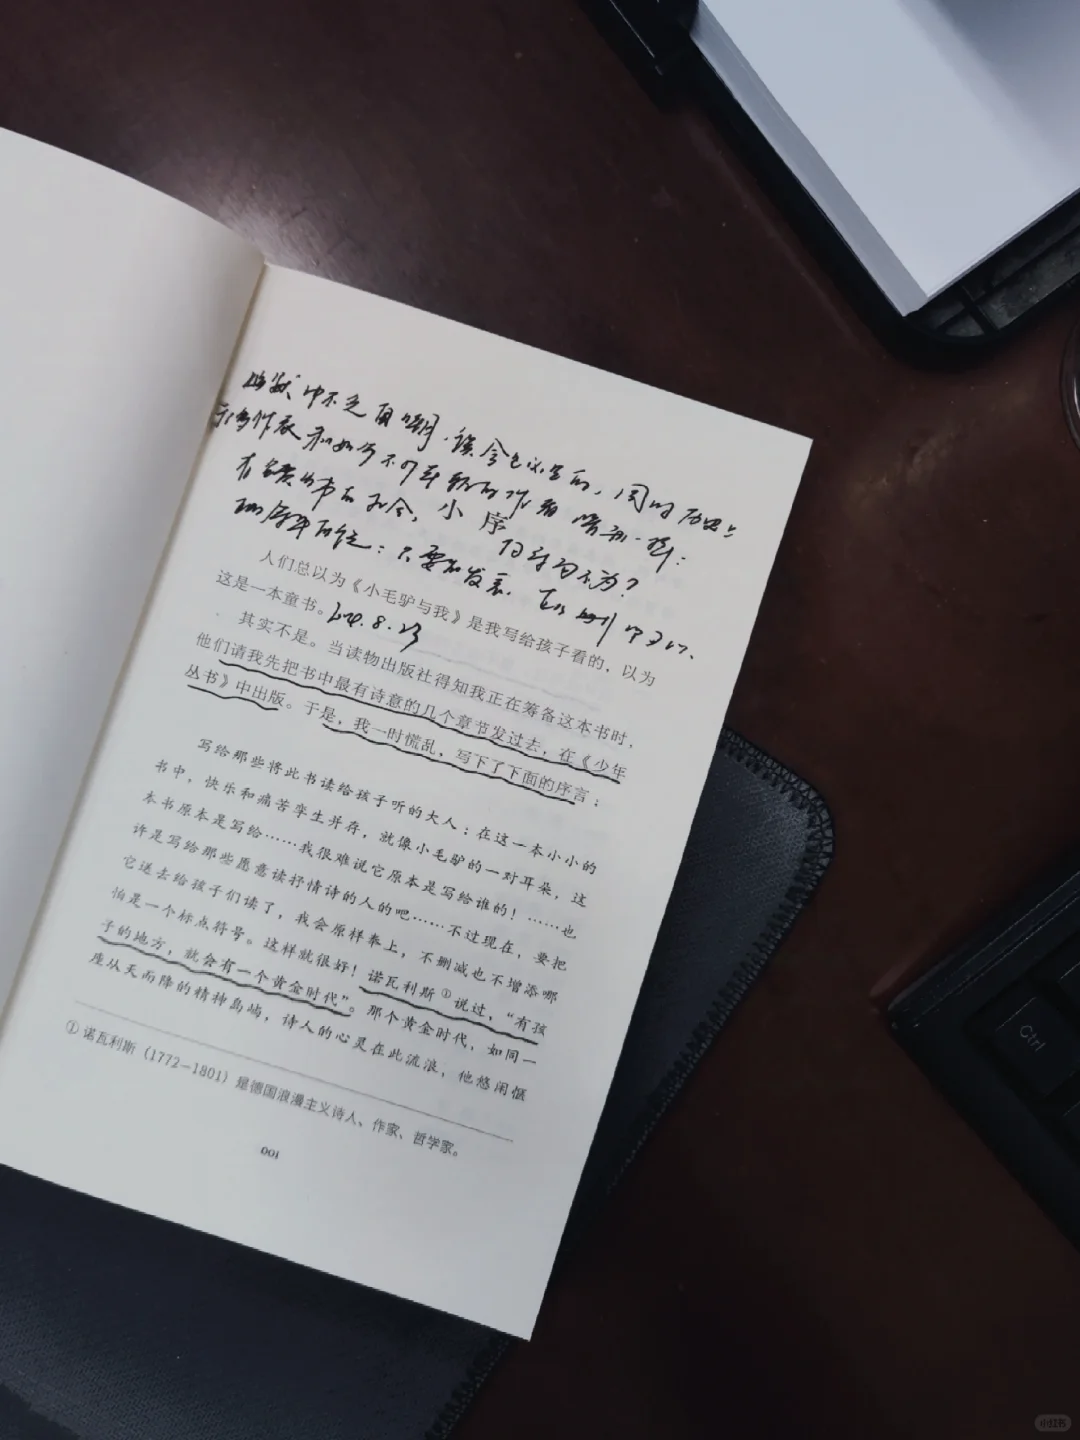 幽默中不乏自嘲.
小序
人们总以为《小毛驴与我》是我写给孩子看的，以为
这是一本童书。
其实不是。当读物出版社得知我正在筹备这本书时，
他们请我先把书中最有诗意的几个章节发过去，在《少年
丛书》中出版。于是，我一时慌乱，写下了下面的序言：
写给那些将此书读给孩子听的大人：在这一本小小的
书中，快乐和痛苦孪生并存，就像小毛驴的一对耳朵，这
本书原本是写给……我很难说它原本是写给谁的！……也
许是写给那些愿意读抒情诗的人的吧……不过现在，要把
它送去给孩子们读了，我会原样奉上，不删减也不增添哪
怕是一个标点符号。这样就很好！诺瓦利斯①说过，“有孩
子的地方，就会有一个黄金时代”。那个黄金时代，如同一
座从天而降的精神岛屿，诗人的心灵在此流浪，他悠闲惬
① 诺瓦利斯（1772－1801）是德国浪漫主义诗人、作家、哲学家。
001
Ctrl
小红书